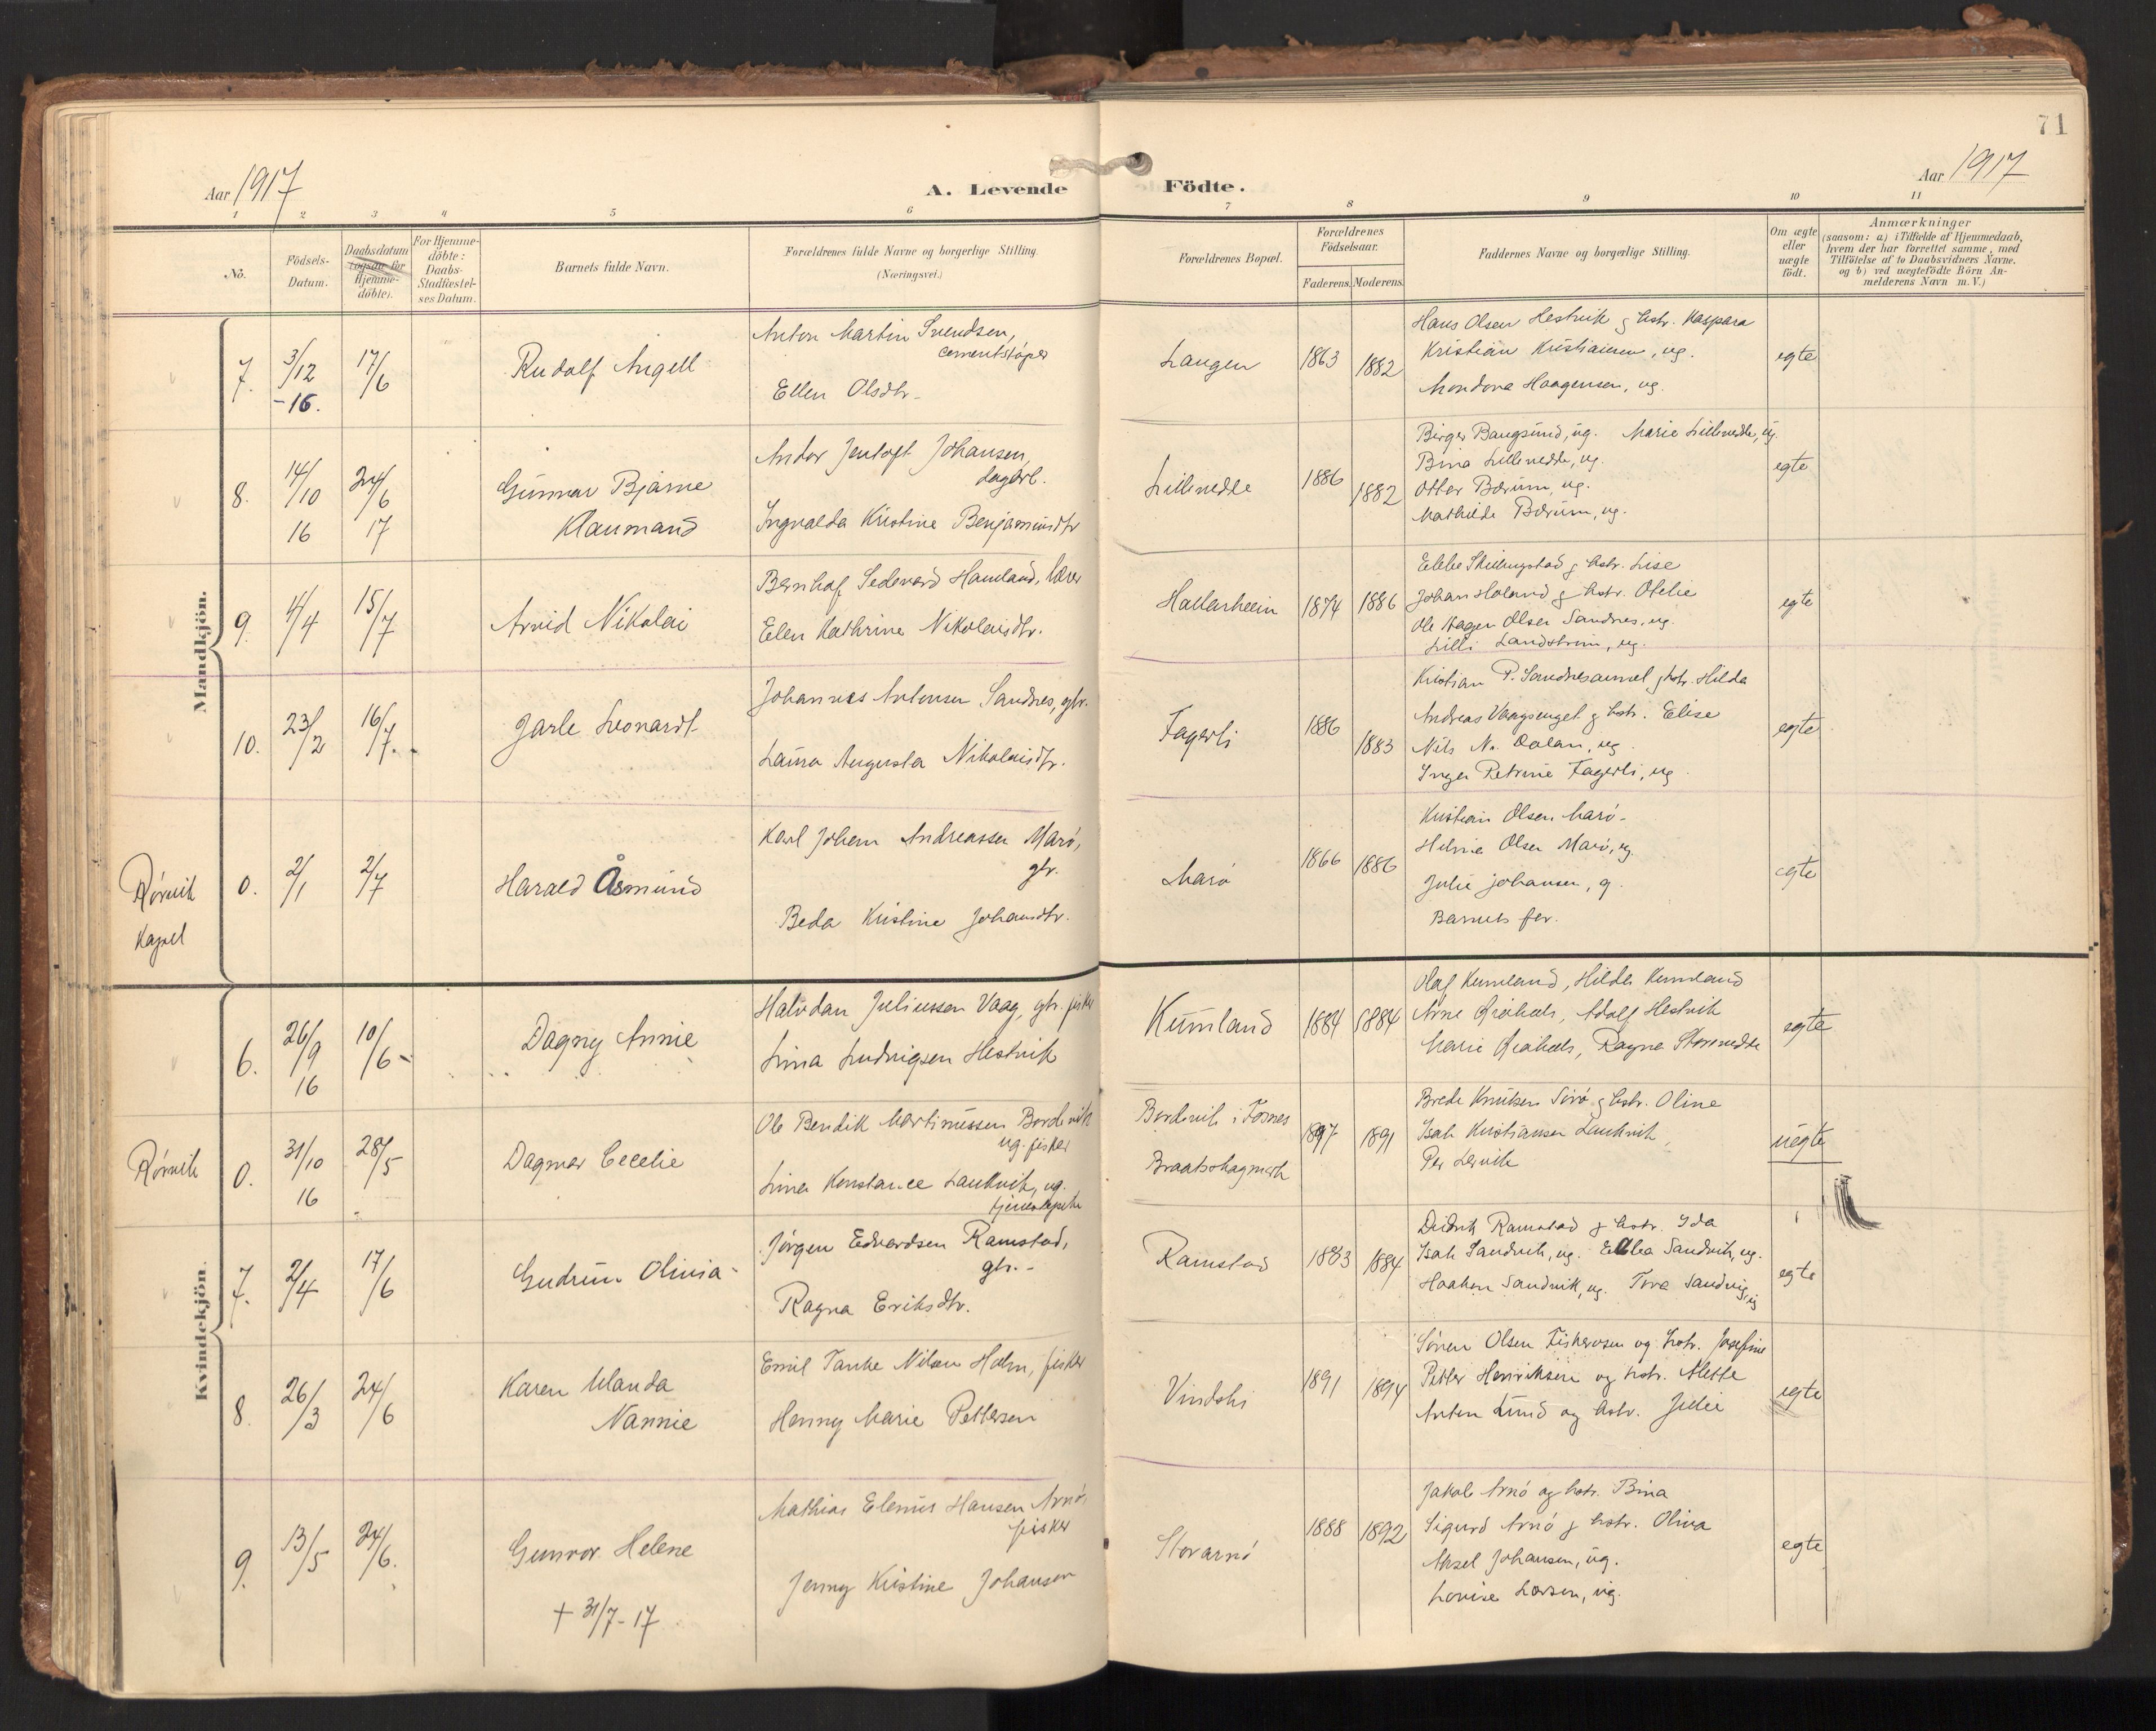 71
Aar 1917
A. Levende Fødte.
Aar 1917
1 2 3 4 5 6 7 8 9 10 11
No.
Födsels-Datum.
Daabsdatum (ogsaa for Hjemme-döbte).
For Hjemme-döbte: Daabs-Stadfæstel-ses Datum.
Barnets fulde Navn.
Forældrenes fulde Navne og borgerlige Stilling. (Næringsvei.)
Forældrenes Bopæl.
Forældrenes Födselsaar.
Faderens. Moderens.
Faddernes Navne og borgerlige Stilling.
Om ægte eller uægte födt.
Anmærkninger
(saasom: a) i Tilfælde af Hjemmedaab,
hvem der har forrettet samme, med
Tilföielse af to Daabsvidners Navne.
og b) ved uægtefödte Börn An-
melderens Navn m. V.)
Mandkjön.
7. 3/12 -16. 17/6
Rudolf Angell
Anton Martin Svendsen,
cementstöper
Ellen Olsdtr.
Langen 1863 1882
Hans Olsen Hestvik g hstr. Kaspara
Kristian Kristiansen, ug.
Mondora Haagensen, ug.
egte
8. 14/10 16 24/6 17
Gunnar Bjarne
Klaumand
Andor Jentoft Johansen,
dagarb.
Ingvalda Kristine Benjaminsdtr
Lillevedde 1886 1882
Birger Baugsund, ug. Marie Lillevedde, ug.
Bina Lillevedde, ug.
Otter Bærum, ug.
Mathilde Bærum, ug.
egte
9. 4/4 15/7
Arvid Nikolai
Bernhof Sedevard Hamland, lærer
Elen Kathrine Nikolaisdtr.
Hallarheim 1874 1886
Ebbe Skillingstad g hstr. Lise
Johan Høland g hstr. Otelie
Ole Hagen Olsen Sandnes, ug.
Lilli Landstrøm, ug.
egte
10. 23/2 16/7
Jarle Leonardt
Johannes Antonsen Sandnes, gbr.
Laura Augusta Nikolaisdtr.
Fagerli 1886 1883
Kristian P. Sandnesaunet g hstr. Hilda
Andreas Vaagsenget g hstr. Elise
Nils N. Dalan, ug.
Inger Petrine Fagerli, ug
egte
Rörvik
Kapel
0. 2/1 2/7
Harald Åsmund
Karl Johan Andreassen Marö,
gbr.
Beda Kristine Johansdtr.
Marö 1866 1886
Kristian Olsen Marö
Helmine Olsen Marö, ug.
Julie Johansen, g.
Barnets far.
egte
Kvindekjön.
6. 26/9 16 10/6
Dagny Annie
Halvdan Juliussen Vaag, gbr. fisker
Lina Ludvigsen Hestvik
Kumland 1884 1884
Olaf Kumland, Hilda Kumland
Arne, Adolf Hestvik
Marie, Ragna
egte
Rörvik
0. 31/10 16 28/5
Dagmar Cecelie
Ole Bendik Martinussen Bordevik
ug. fisker
Lina Konstance Laukvik, ug.
tjenestepike
Bordevik i Fosnes
Braatshagmark
1897 1891
Brede Knutsen Sirö g hstr. Oline
Isak Kristiansen Laukvik
Per Lervik
uegte
7. 2/4 17/6
Gudrun Olivia
Jörgen Edvardsen Ramstad,
gbr.
Ragna Eriksdtr.
Ramstad 1883 1884
Didrik Ramstad g hstr. Ida
Isak Sandvik, ug. Ebba Sandvik, ug.
Haakon Sandvik, ug. Tora Sandvig, ug
egte
8. 26/3 24/6
Karen Wanda
Nannie
Emil Tanke Nilsen Holm, fisker
Henny Marie Pettersen
Vindshi 1891 1894
Sören Olsen Fiskerosen og hstr. Josefine
Petter Henriksen og hstr. Mette
Anton Lund og hstr. Julie
egte
9. 13/5 24/6.
Gunvor Helene
+ 31/7-17
Mathias Elenius Hansen Arnö,
fisker
Jenny Kristine Johansen
Storarnö 1888 1892
Jakob Arnö og hstr. Bina
Sigurd Arnö g hstr. Oliva
Aksel Johansen, ug.
Lovise Larsen, ug.
egte